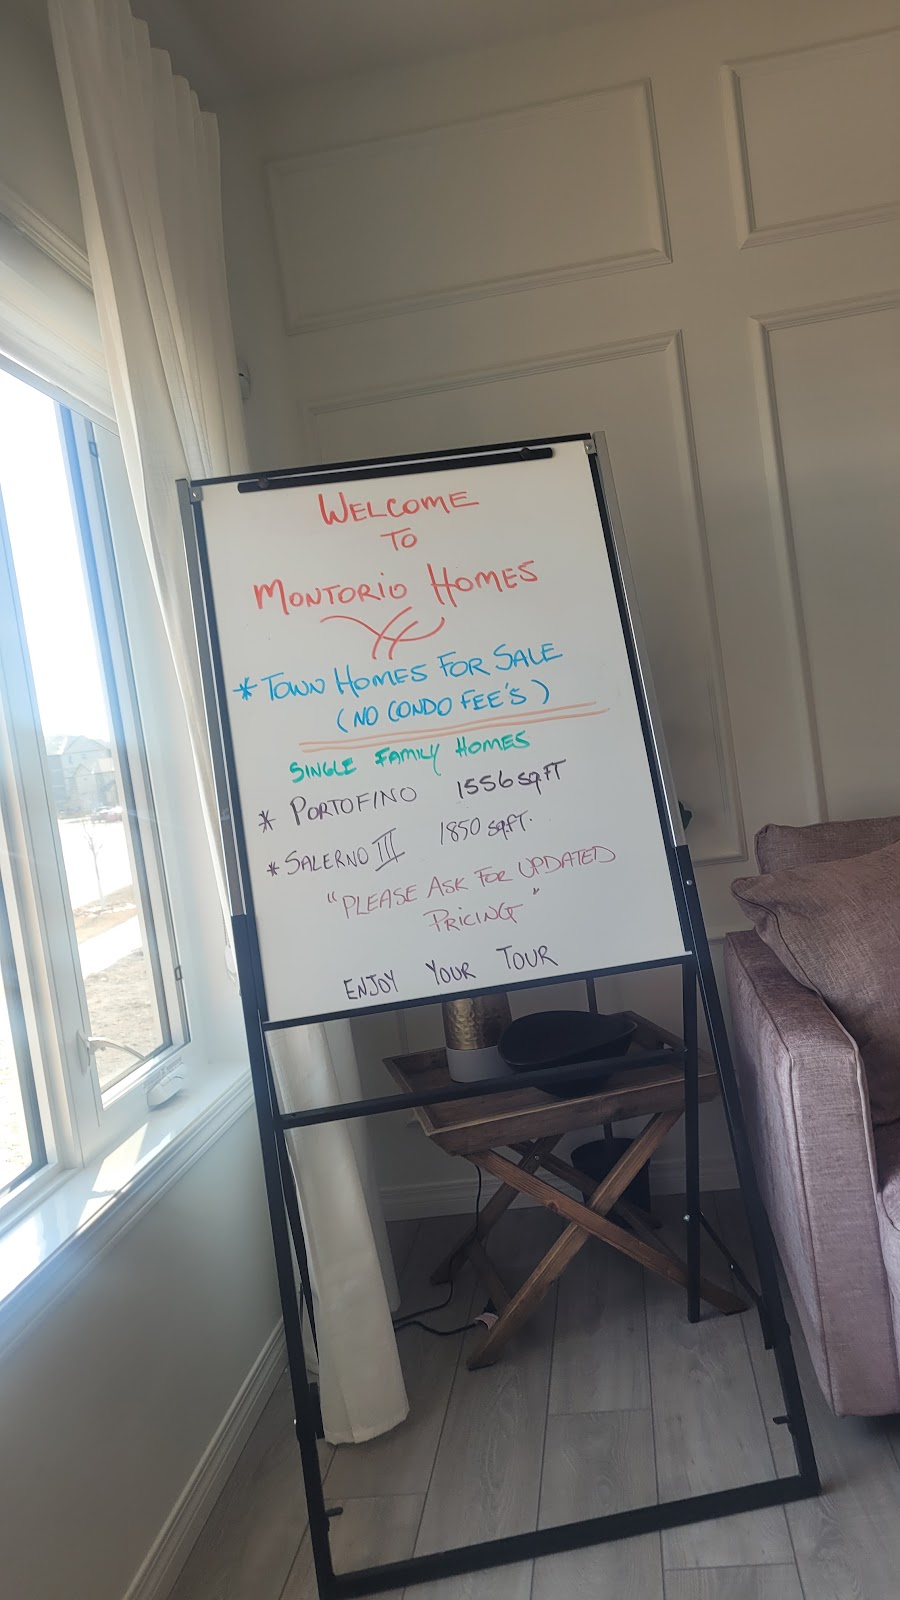 WELCOME
TO
MONTORIO HOMES
* TOWN HOMES FOR SALE
(NO CONDO FEE'S)
SINGLE FAMILY HOMES
* PORTOFINO 1556 sqFT
* SALERNO III 1850 sqFT.
"PLEASE ASK FOR UPDATED
PRICING"
ENJOY YOUR TOUR